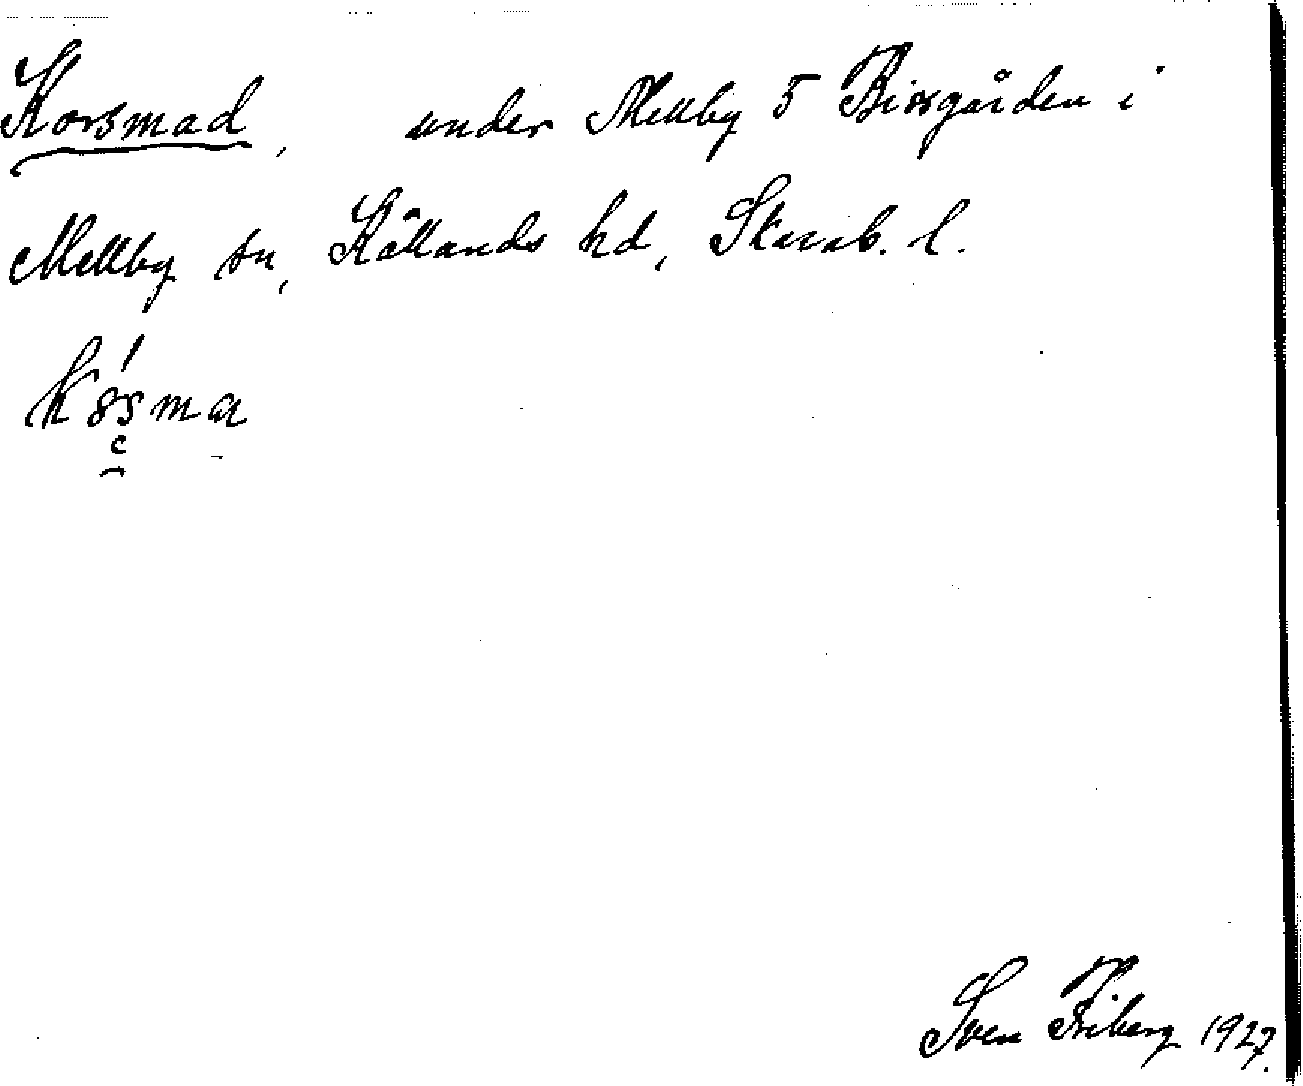 Korsmad, under Mellby 5 Biosgården i
Mellby sn, Kållands hd, Skarab. l.
Sven Friberg 1927.